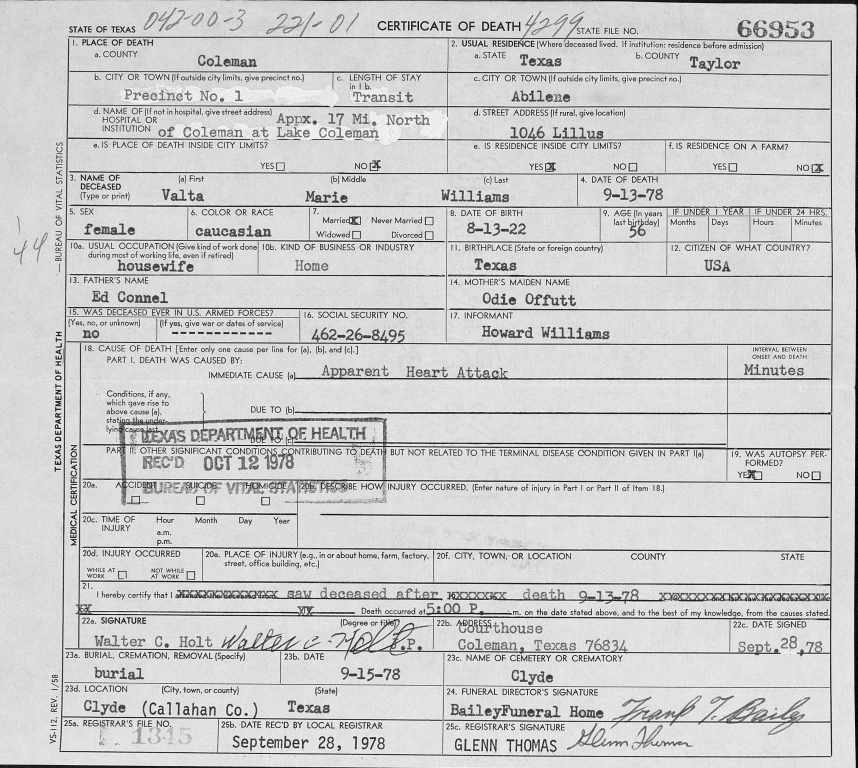 042-00-3 221-01 4299
STATE OF TEXAS CERTIFICATE OF DEATH STATE FILE NO. 66953
1. PLACE OF DEATH
a. COUNTY
Coleman
2. USUAL RESIDENCE (Where deceased lived. If institution: residence before admission)
a. STATE Texas b. COUNTY Taylor
b. CITY OR TOWN (If outside city limits, give precinct no.)
Precinct No. 1
c. LENGTH OF STAY
in 1 b.
Transit
c. CITY OR TOWN (If outside city limits, give precinct no.)
Abilene
d. NAME OF (If not in hospital, give street address)
HOSPITAL OR
INSTITUTION
Appx. 17 Mi. North
of Coleman at Lake Coleman
d. STREET ADDRESS (If rural, give location)
1046 Lillus
e. IS PLACE OF DEATH INSIDE CITY LIMITS?
YES NO X
e. IS RESIDENCE INSIDE CITY LIMITS?
YES X NO
f. IS RESIDENCE ON A FARM?
YES NO X
3. NAME OF
DECEASED
(Type or print)
(a) First (b) Middle (c) Last
Valta Marie Williams
4. DATE OF DEATH
9-13-78
5. SEX
female
6. COLOR OR RACE
caucasian
7.
Married X Never Married
Widowed Divorced
8. DATE OF BIRTH
8-13-22
9. AGE (In years
last birthday)
56
IF UNDER 1 YEAR
Months Days
IF UNDER 24 HRS.
Hours Minutes
10a. USUAL OCCUPATION (Give kind of work done
during most of working life, even if retired)
housewife
10b. KIND OF BUSINESS OR INDUSTRY
Home
11. BIRTHPLACE (State or foreign country)
Texas
12. CITIZEN OF WHAT COUNTRY?
USA
13. FATHER'S NAME
Ed Connel
14. MOTHER'S MAIDEN NAME
Odie Offutt
15. WAS DECEASED EVER IN U.S. ARMED FORCES?
(Yes, no, or unknown) (If yes, give war or dates of service)
no -------------
16. SOCIAL SECURITY NO.
462-26-8495
17. INFORMANT
Howard Williams
18. CAUSE OF DEATH [Enter only one cause per line for (a), (b), and (c).]
PART I. DEATH WAS CAUSED BY:
IMMEDIATE CAUSE (a) Apparent Heart Attack
INTERVAL BETWEEN
ONSET AND DEATH
Minutes
Conditions, if any,
which gave rise to
above cause (a),
stating the under-
lying cause last.
DUE TO (b)
DUE TO (c)
TEXAS DEPARTMENT OF HEALTH
REC'D OCT 12 1978
BUREAU OF VITAL STATISTICS
PART II. OTHER SIGNIFICANT CONDITIONS CONTRIBUTING TO DEATH BUT NOT RELATED TO THE TERMINAL DISEASE CONDITION GIVEN IN PART I(a)
19. WAS AUTOPSY PER-
FORMED?
YES X NO
20a. ACCIDENT SUICIDE HOMICIDE
20b. DESCRIBE HOW INJURY OCCURRED. (Enter nature of injury in Part I or Part II of Item 18.)
20c. TIME OF
INJURY
Hour Month Day Year
a.m.
p.m.
20d. INJURY OCCURRED
WHILE AT
WORK
NOT WHILE
AT WORK
20e. PLACE OF INJURY (e.g., in or about home, farm, factory,
street, office building, etc.)
20f. CITY, TOWN, OR LOCATION COUNTY STATE
21.
I hereby certify that I saw deceased after death 9-13-78
Death occurred at 5:00 P. m. on the date stated above, and to the best of my knowledge, from the causes stated.
22a. SIGNATURE (Degree or title)
Walter C. Holt Walter C. Holt J.P.
22b. ADDRESS
Courthouse
Coleman, Texas 76834
22c. DATE SIGNED
Sept. 28, 78
23a. BURIAL, CREMATION, REMOVAL (Specify)
burial
23b. DATE
9-15-78
23c. NAME OF CEMETERY OR CREMATORY
Clyde
23d. LOCATION (City, town, or county) (State)
Clyde (Callahan Co.) Texas
24. FUNERAL DIRECTOR'S SIGNATURE
BaileyFuneral Home Frank T. Bailey
25a. REGISTRAR'S FILE NO.
1345
25b. DATE REC'D BY LOCAL REGISTRAR
September 28, 1978
25c. REGISTRAR'S SIGNATURE
GLENN THOMAS Glenn Thomas
44
TEXAS DEPARTMENT OF HEALTH — BUREAU OF VITAL STATISTICS
MEDICAL CERTIFICATION
VS-112, REV. 1/58